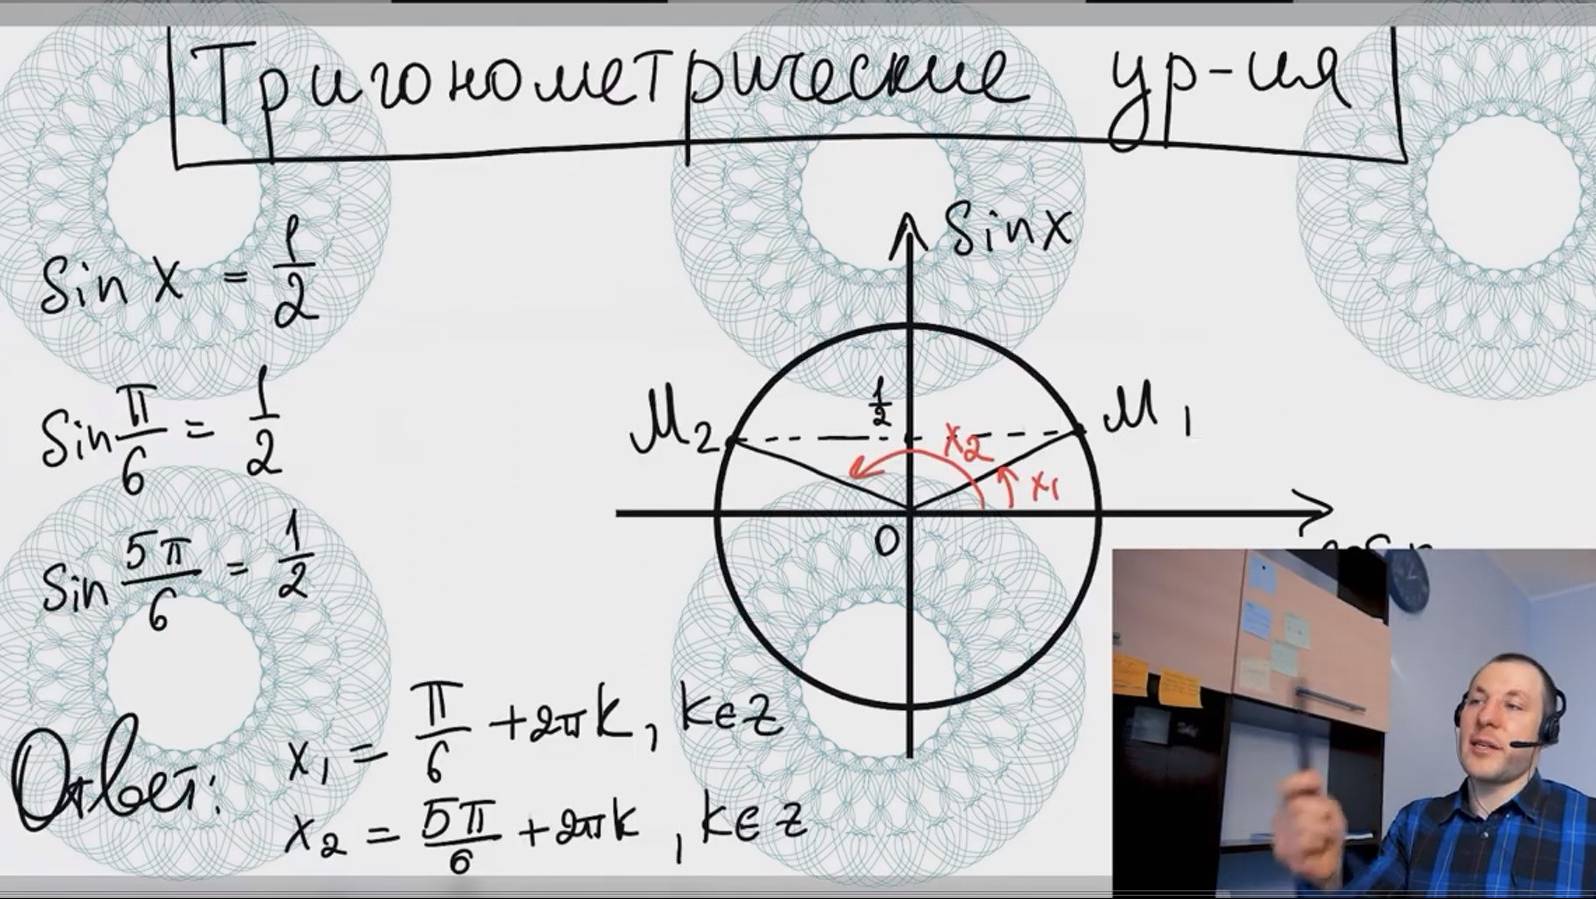 Тригонометрические ур-ия
sin x = 1/2
sin π/6 = 1/2
sin 5π/6 = 1/2
Sin x
1/2
M₂
M₁
x₂
x₁
0
Ответ: x₁ = π/6 + 2πk, k∈z
x₂ = 5π/6 + 2πk, k∈z